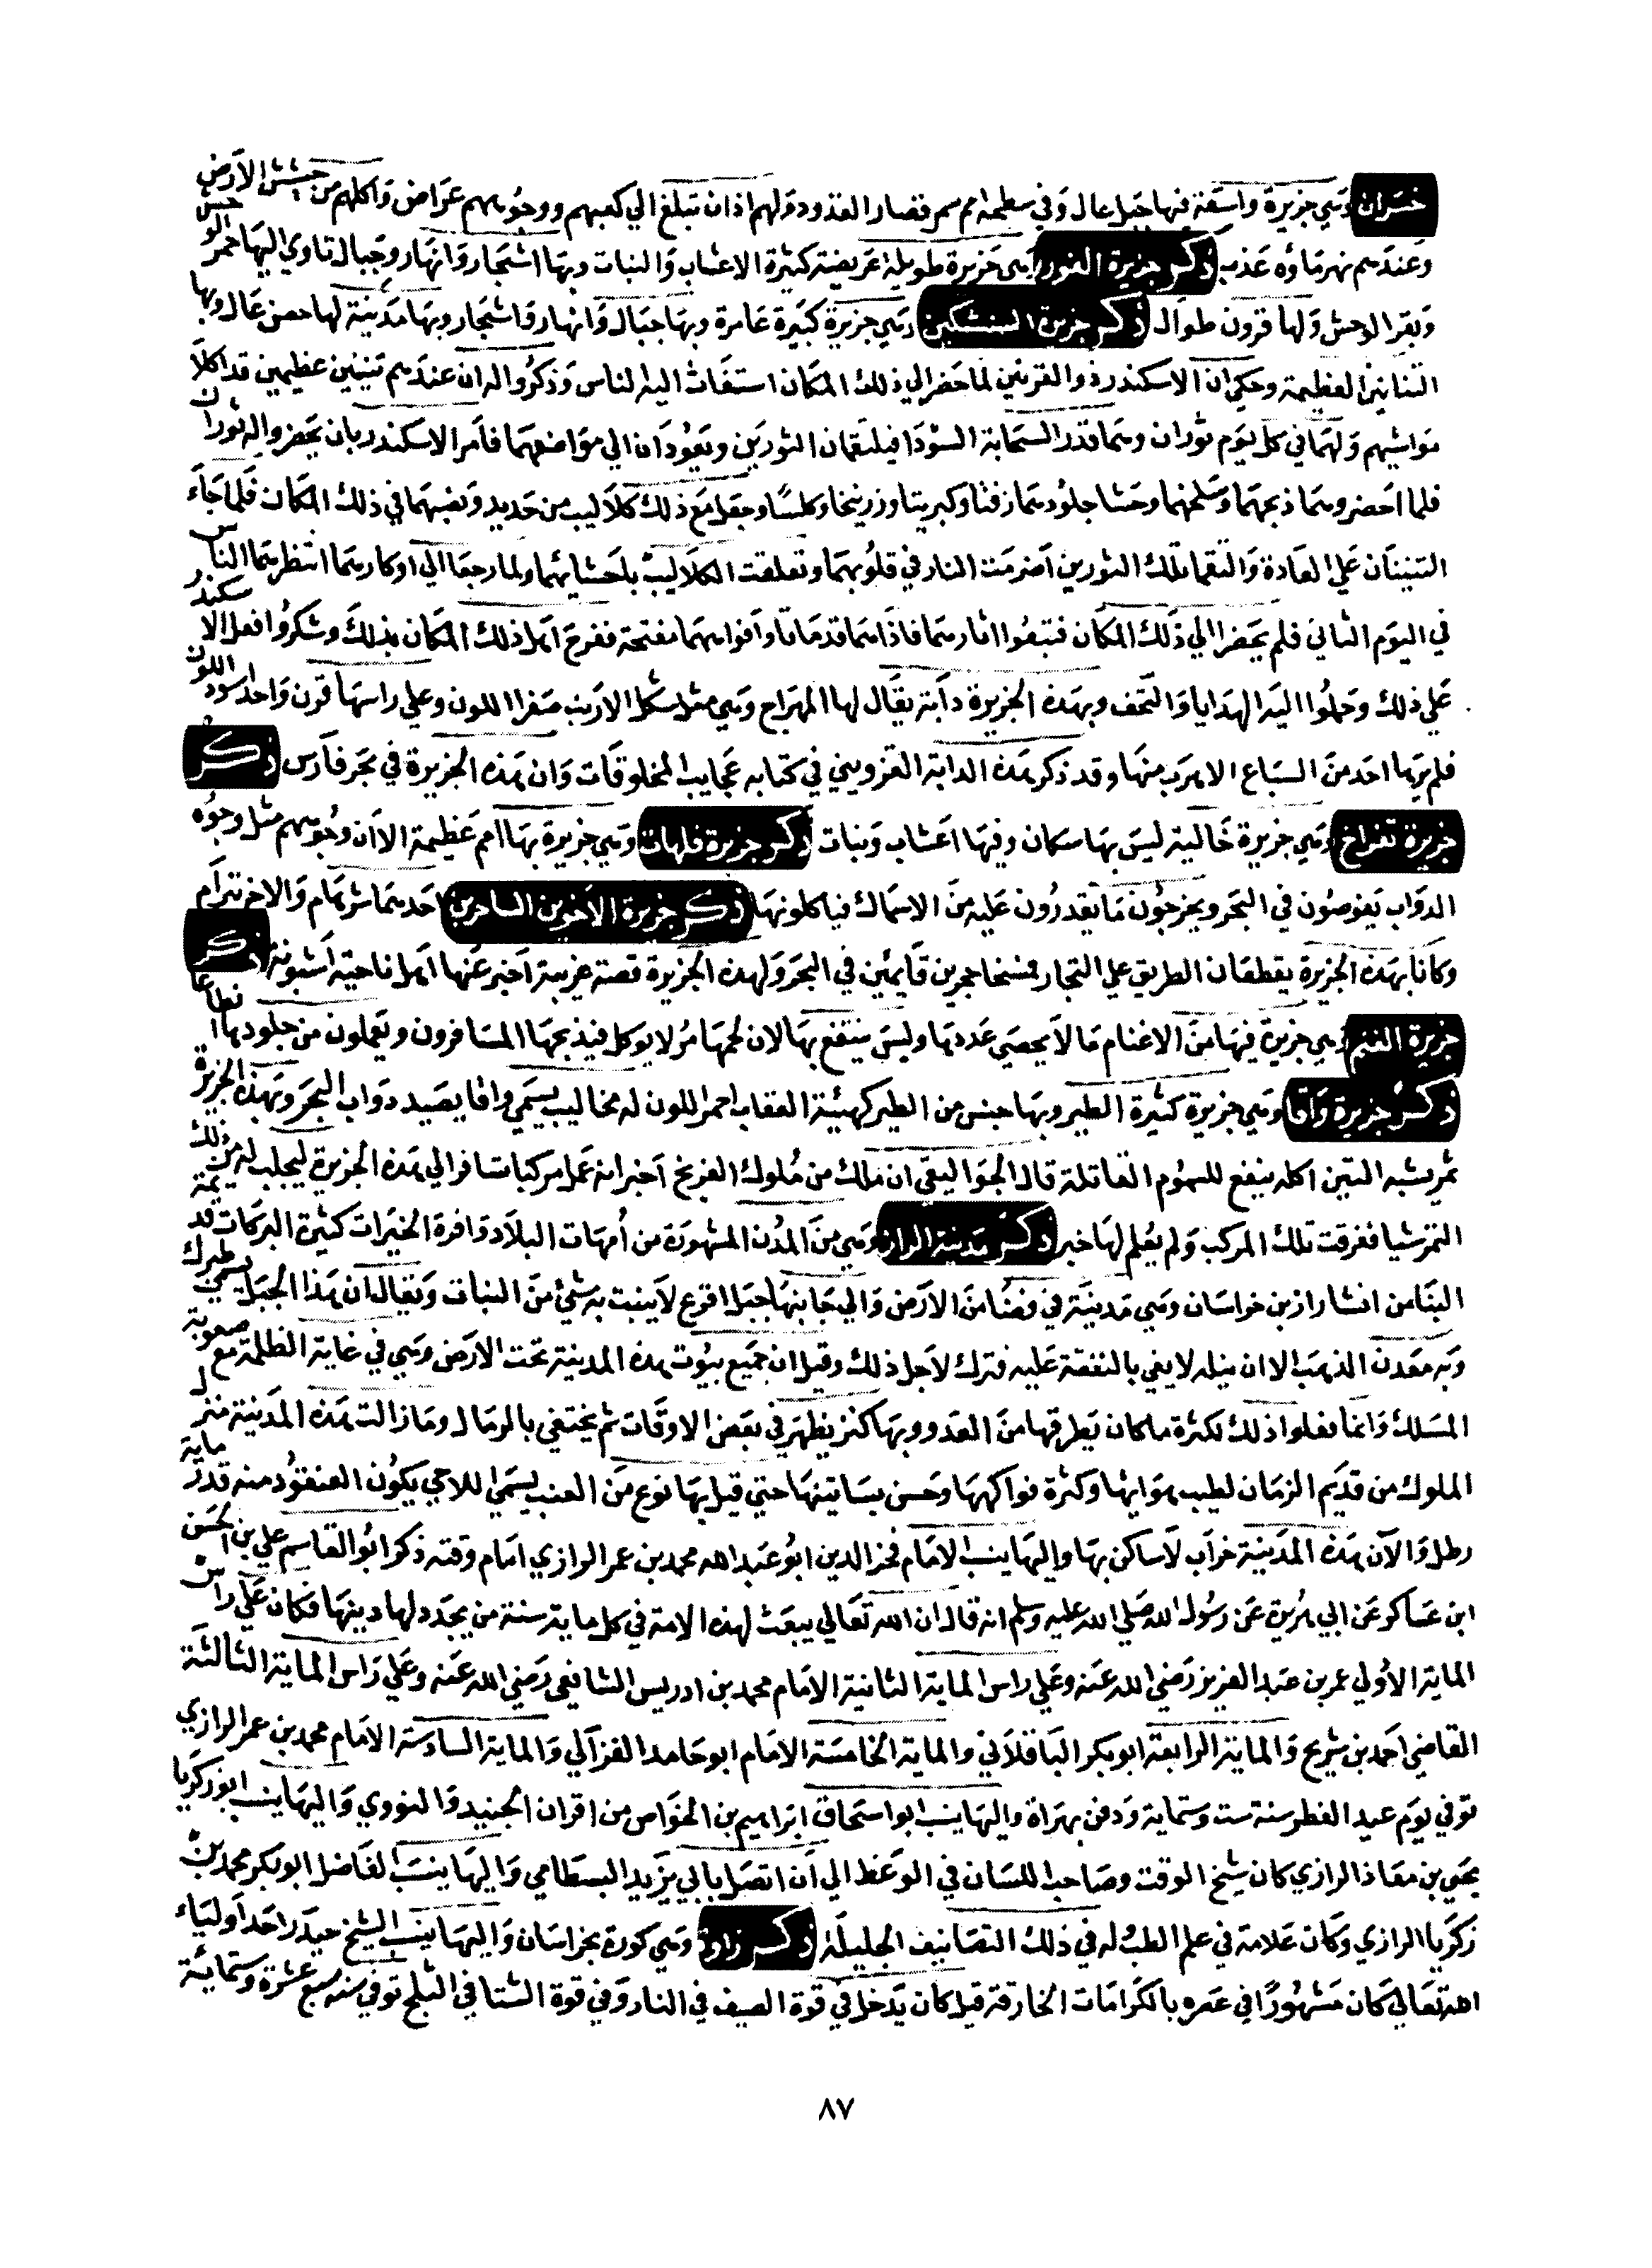 خسران وهي جزيرة واسعة فيها جبل عال وفي سطحه امم سمر قصار القدود ولهم اذان تبلغ الي كعبهم ووجوههم عراض واكلهم من حشيش الارض
وعندهم نهر ماؤه عذب ذكر جزيرة الغور وهي جزيرة طويلة عريضة كثيرة الاعشاب والنبات وبها اشجار وانهار وجبال تاوي اليها حمر الوحش
وبقر الوحش ولها قرون طوال ذكر جزيرة المستشكين وهي جزيرة كبيرة عامرة وبها جبال وانهار واشجار وبها مدينة لها حصن عال وبها
التنانين العظيمة وحكي ان الاسكندر ذو القرنين لما حضر الي ذلك المكان استغاث اليه الناس وذكروا له ان عندهم تنينين عظيمين قد اكلا
مواشيهم ولهما في كل يوم ثوران وهما قدر السحابة السودا فيلتقمان الثورين ويعودان الي مواضعهما فامر الاسكندر بان يحضروا له ثوران
فلما احضروهما ذبحهما وسلخهما وحشا جلودهما زفتا وكبريتا وزرنيخا وكلسا وجعل مع ذلك كلاليب من حديد ونصبهما في ذلك المكان فلما جاء
التنينان علي العادة والتقما تلك الثورين اضرمت النار في قلوبهما وتعلقت الكلاليب باحشايهما ولما رجعا الي اوكارهما انتظرهما الناس
في اليوم الثاني فلم يحضرا الي ذلك المكان فتبعوا اثارهما فاذا هما قد ماتا وافواههما مفتحة ففرح اهل ذلك المكان بذلك وشكروا فعل الاسكندر
علي ذلك وحملوا اليه الهدايا والتحف وبهذه الجزيرة دابة يقال لها المهراج وهي مثل شكل الارنب صفرا اللون وعلي راسها قرن واحد اسود اللون
فلم يرها احد من السباع الا هرب منها وقد ذكر هذه الدابة القزويني في كتابه عجايب المخلوقات وان هذه الجزيرة في بحر فارس ذكر
جزيرة تغراخ وهي جزيرة خالية ليس بها سكان وفيها اعشاب ونبات ذكر جزيرة قلهات وهي جزيرة بها امم عظيمة الا ان وجوههم مثل وجوه
الدواب يغوصون في البحر ويخرجون ما يقدرون عليه من الاسماك فياكلونها ذكر جزيرة الاخوين الساحرين احدهما شرهام والاخر شرام
وكانا بهذه الجزيرة يقطعان الطريق علي التجار فمسخا حجرين قايمين في البحر ولهذه الجزيرة قصة غريبة اخبر عنها اهل ناحية اشبونة ذكر
جزيرة الغنم وهي جزيرة فيها من الاغنام ما لا يحصي عددها وليس ينتفع بها لان لحمها مر لا يوكل فيذبحها المسافرون ويعملون من جلودها انطاعا
ذكر جزيرة واقا وهي جزيرة كثيرة الطير وبها جنس من الطير كهيئة العقاب احمر اللون له مخاليب يسمي واقا يصيد دواب البحر وبهذه الجزيرة
ثمر يشبه التين اكله ينفع للسموم القاتلة قال الجواليقي ان ملك من ملوك الفرنج اخبر انه عمل مركبا سافر الي هذه الجزيرة ليجلب له من ذلك
الثمر شيا فغرقت تلك المركب ولم يعلم لها خبر ذكر مدينة الرازة وهي من المدن المشهورة من امهات البلاد وافرة الخيرات كثيرة البركات قديمة
البنا من انشا راز بن خراسان وهي مدينة في فضا من الارض والي جانبها جبل اقرع لا ينبت به شئ من النبات ويقال ان هذا الجبل يسمي طبرك
وبه معدن الذهب الا ان نيله لا يفي بالنفقة عليه فترك لاجل ذلك وقيل ان جميع بيوت هذه المدينة تحت الارض وهي في غاية الظلمة مع صعوبة
المسلك وانما فعلوا ذلك لكثرة ما كان يطرقها من العدو وبها كنز يظهر في بعض الاوقات ثم يختفي بالرمال وما زالت هذه المدينة منزل
الملوك من قديم الزمان لطيب هوايها وكثرة فواكهها وحسن بساتينها حتي قيل بها نوع من العنب يسمي الملاحي يكون العنقود منه قدر ماية
رطل والآن هذه المدينة خراب لا ساكن بها واليها ينسب الامام فخر الدين ابو عبد الله محمد بن عمر الرازي امام وقته ذكر ابو القاسم علي بن الحسن
ابن عساكر عن ابي هريرة عن رسول الله صلي الله عليه وسلم انه قال ان الله تعالي يبعث لهذه الامة في كل ماية سنة من يجدد لها دينها فكان علي راس
الماية الاولي عمر بن عبد العزيز رضي الله عنه وعلي راس الماية الثانية الامام محمد بن ادريس الشافعي رضي الله عنه وعلي راس الماية الثالثة
القاضي احمد بن شريح والماية الرابعة ابو بكر الباقلاني والماية الخامسة الامام ابو حامد الغزالي والماية السادسة الامام محمد بن عمر الرازي
توفي يوم عيد الفطر سنة ست وستماية ودفن بهراة واليها ينسب ابو اسحاق ابراهيم بن الخواص من اقران الجنيد والنووي واليها ينسب ابو زكريا
يحيي بن معاذ الرازي كان شيخ الوقت وصاحب اللسان في الوعظ الي ان اتصل بابي يزيد البسطامي واليها ينسب الفاضل ابو بكر محمد بن
زكريا الرازي وكان علامة في علم الطب له في ذلك التصانيف الجليلة ذكر زاوة وهي كورة بخراسان واليها ينسب الشيخ حيدر احد اولياء
الله تعالي كان مشهورا في عصره بالكرامات الخارقة قيل كان يدخل في قوة الصيف في النار وفي قوة الشتا في الثلج توفي سنة سبع عشرة وستمائة
٨٧